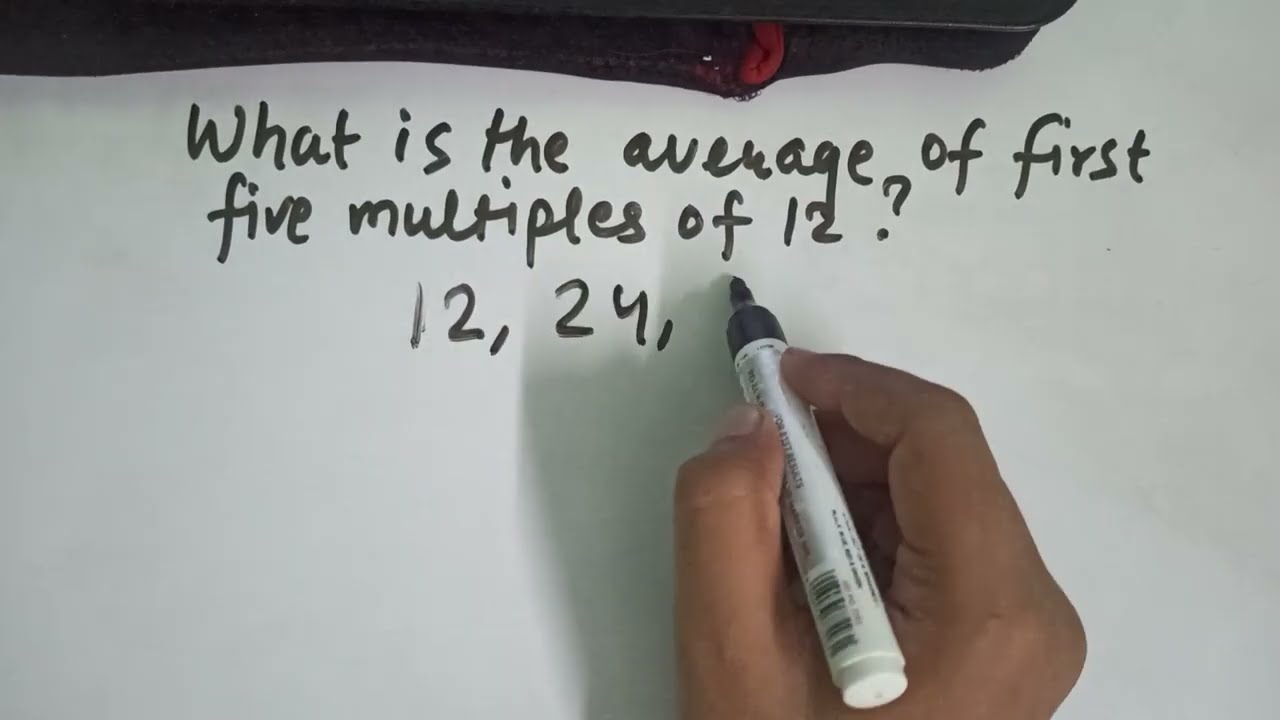 What is the average of first
five multiples of 12?
12, 24,
FOR BEST RESULTS